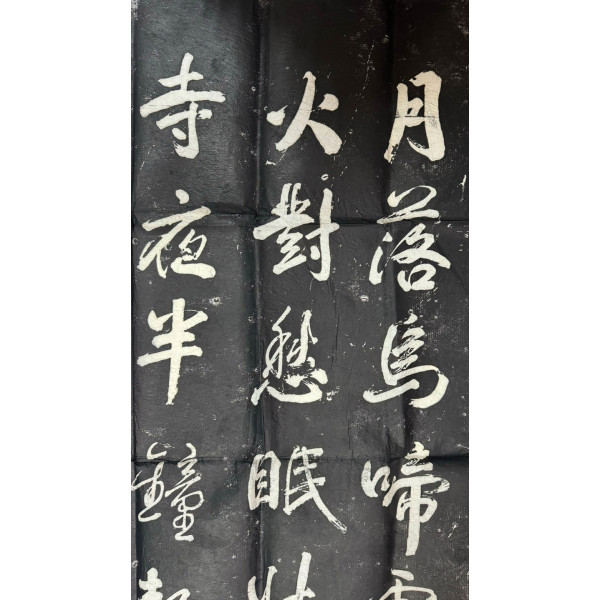 月落烏啼
火對愁眠
寺夜半鐘